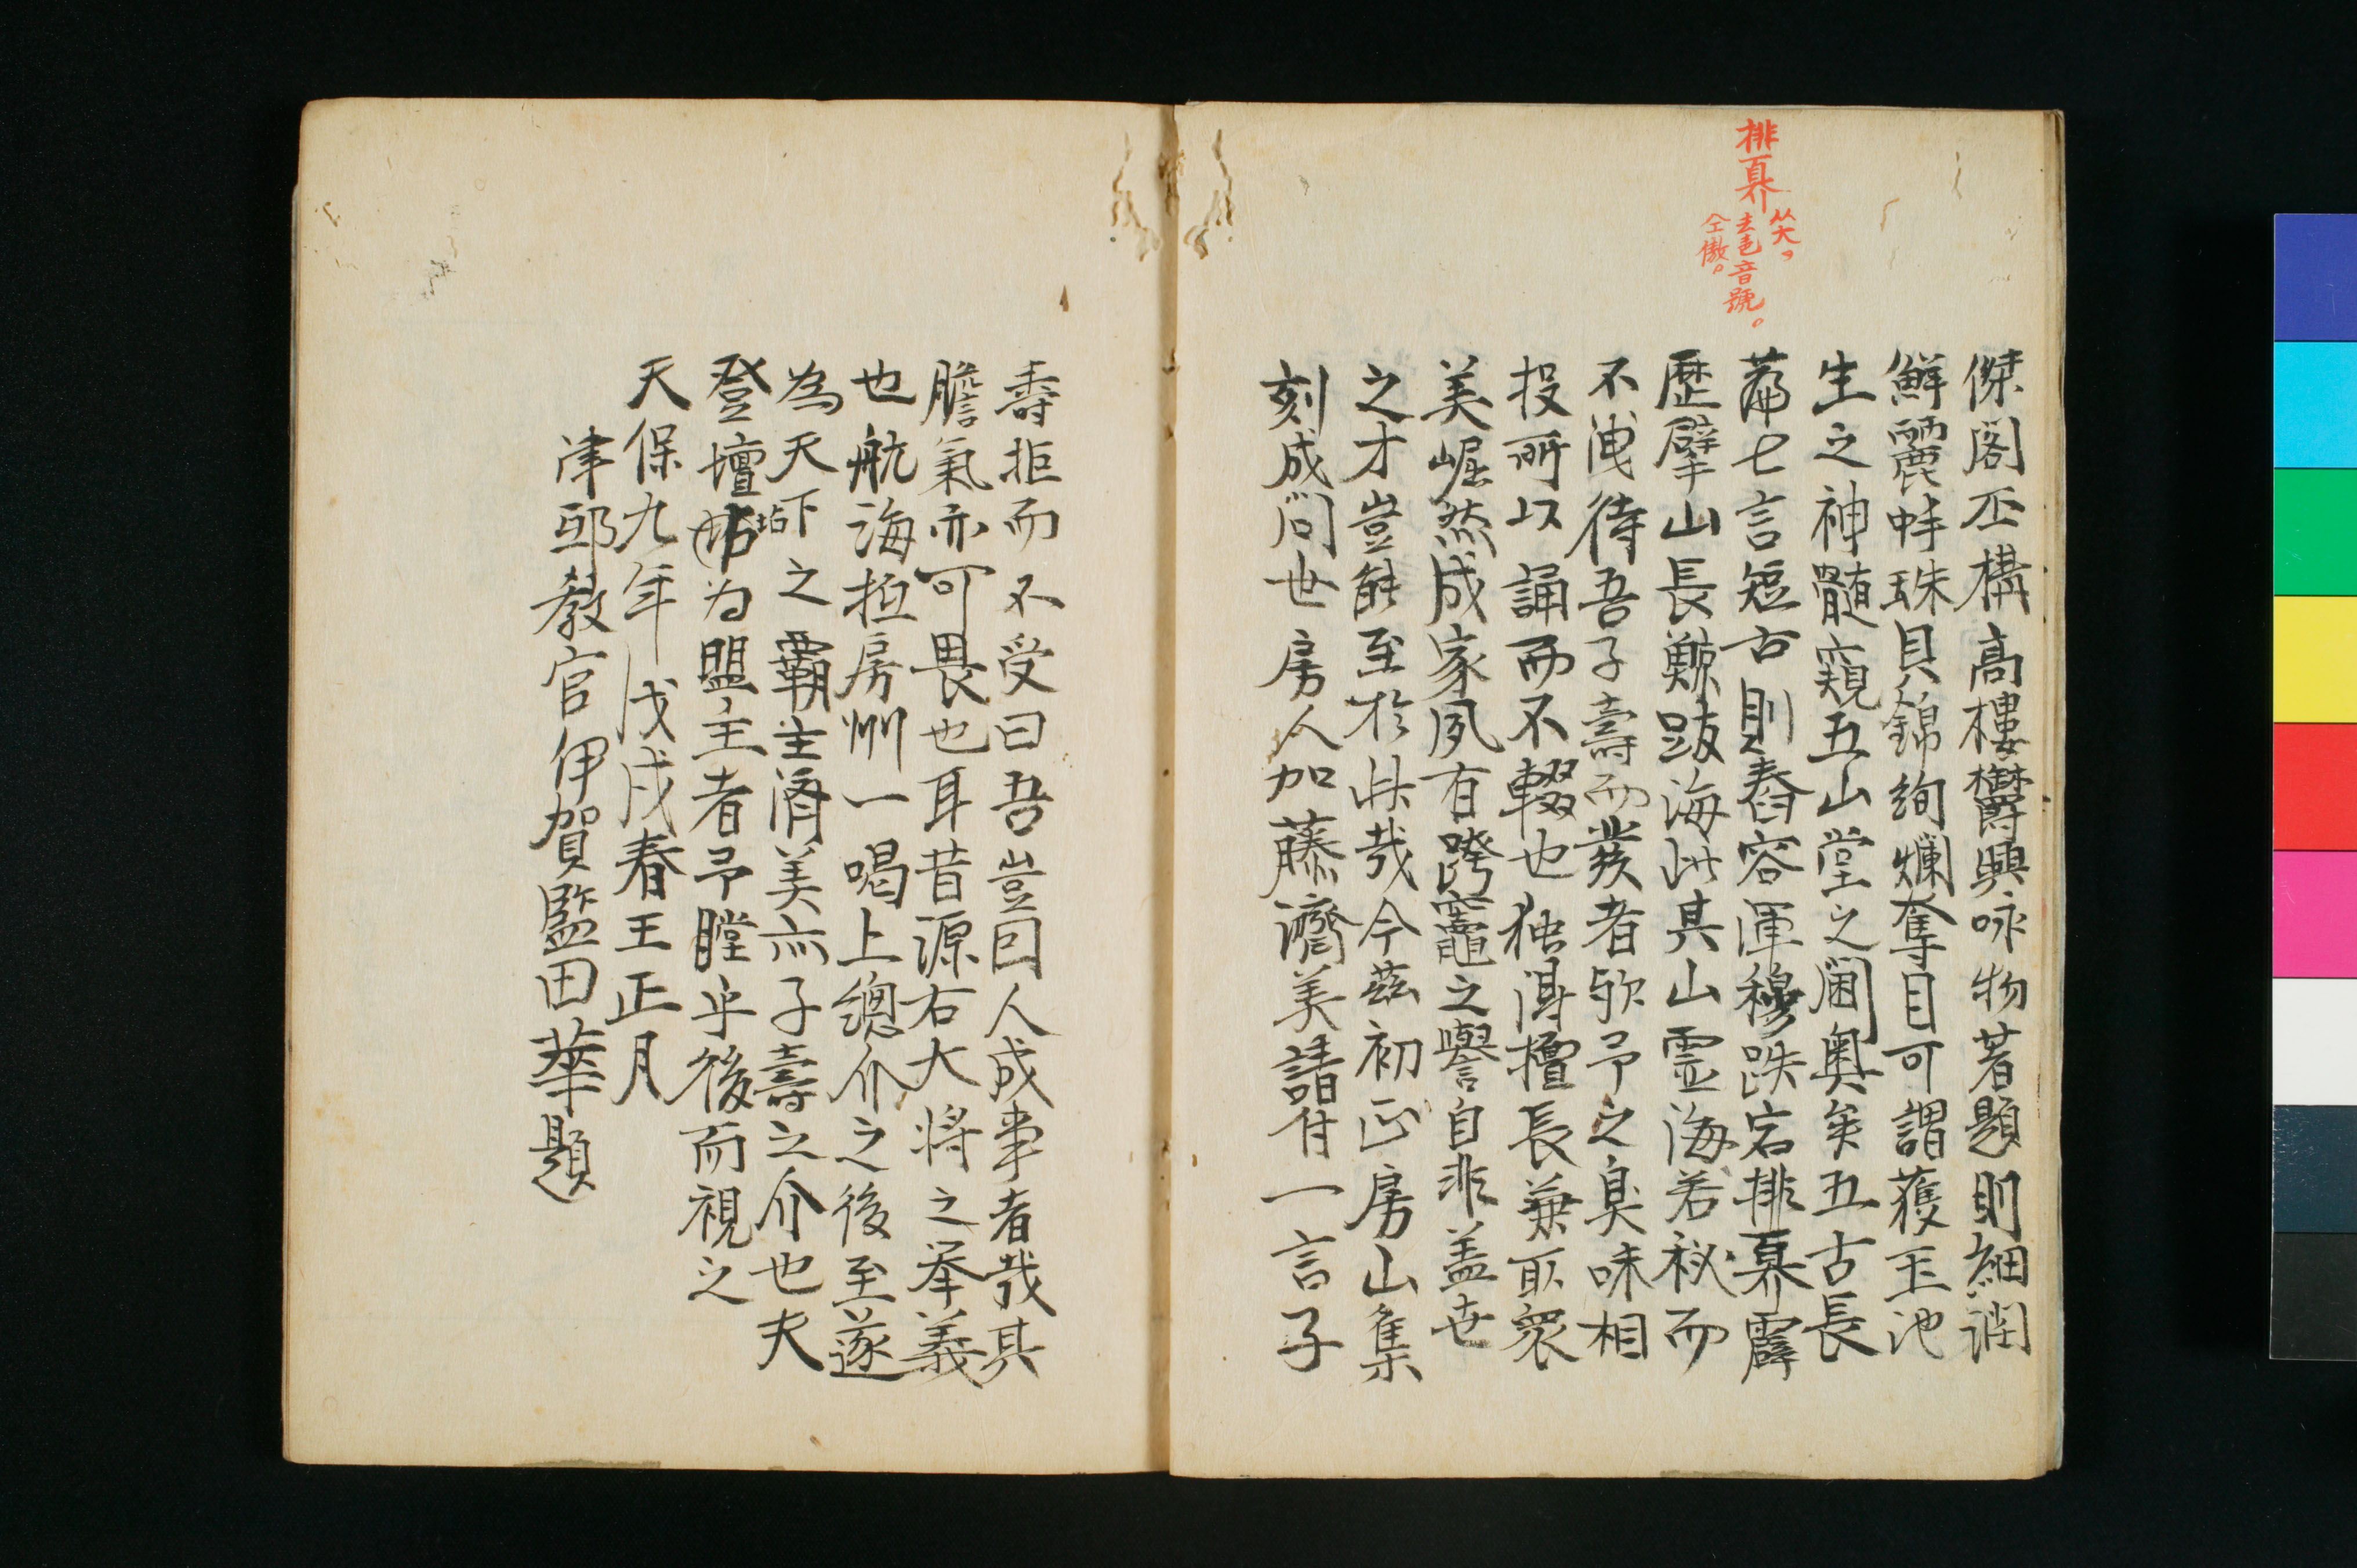 排奡
笑大。
去色音號。
仝傲。
傑閣丕構高樓欝興咏物著題則細潤
鮮麗蚌珠貝錦絢爛奪目可謂獲玉池
生之神髄窺五山堂之閫奥矣五古長
萹七言短古則舂容渾穆跌宕排奡霹
歷擘山長鯨跋海此其山霊海若秘而
不洩待吾子壽而發者欤予之臭味相
投所以誦而不輟也独淂擅長兼取衆
美崛然成家夙有跨竈之譽自非盖世
之才豈能至於此哉今茲初正房山集
刻成问世房人加藤濟美請付一言子
壽拒而不受曰吾豈因人成事者哉其
膽氣亦可畏也耳昔源右大将之举義
也航海抵房州一喝上總介之後至遂
為天下之霸主濟美亦子壽之介也夫
登壇坫为盟主者予瞠乎後而視之
天保九年戊戌春王正月
津邸教官伊賀監田華題